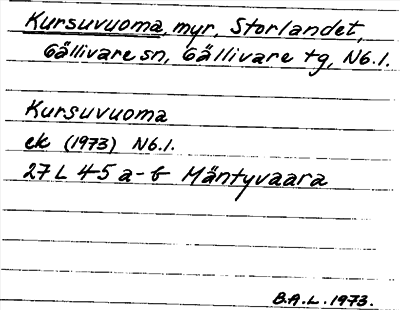 Kursuvuoma, myr, Storlandet,
Gällivare sn, Gällivare tg, N6.1.
Kursuvuoma
ek (1973) N6.1.
27 L 4-5 a-b Mäntyvaara
B.A.L. 1973.